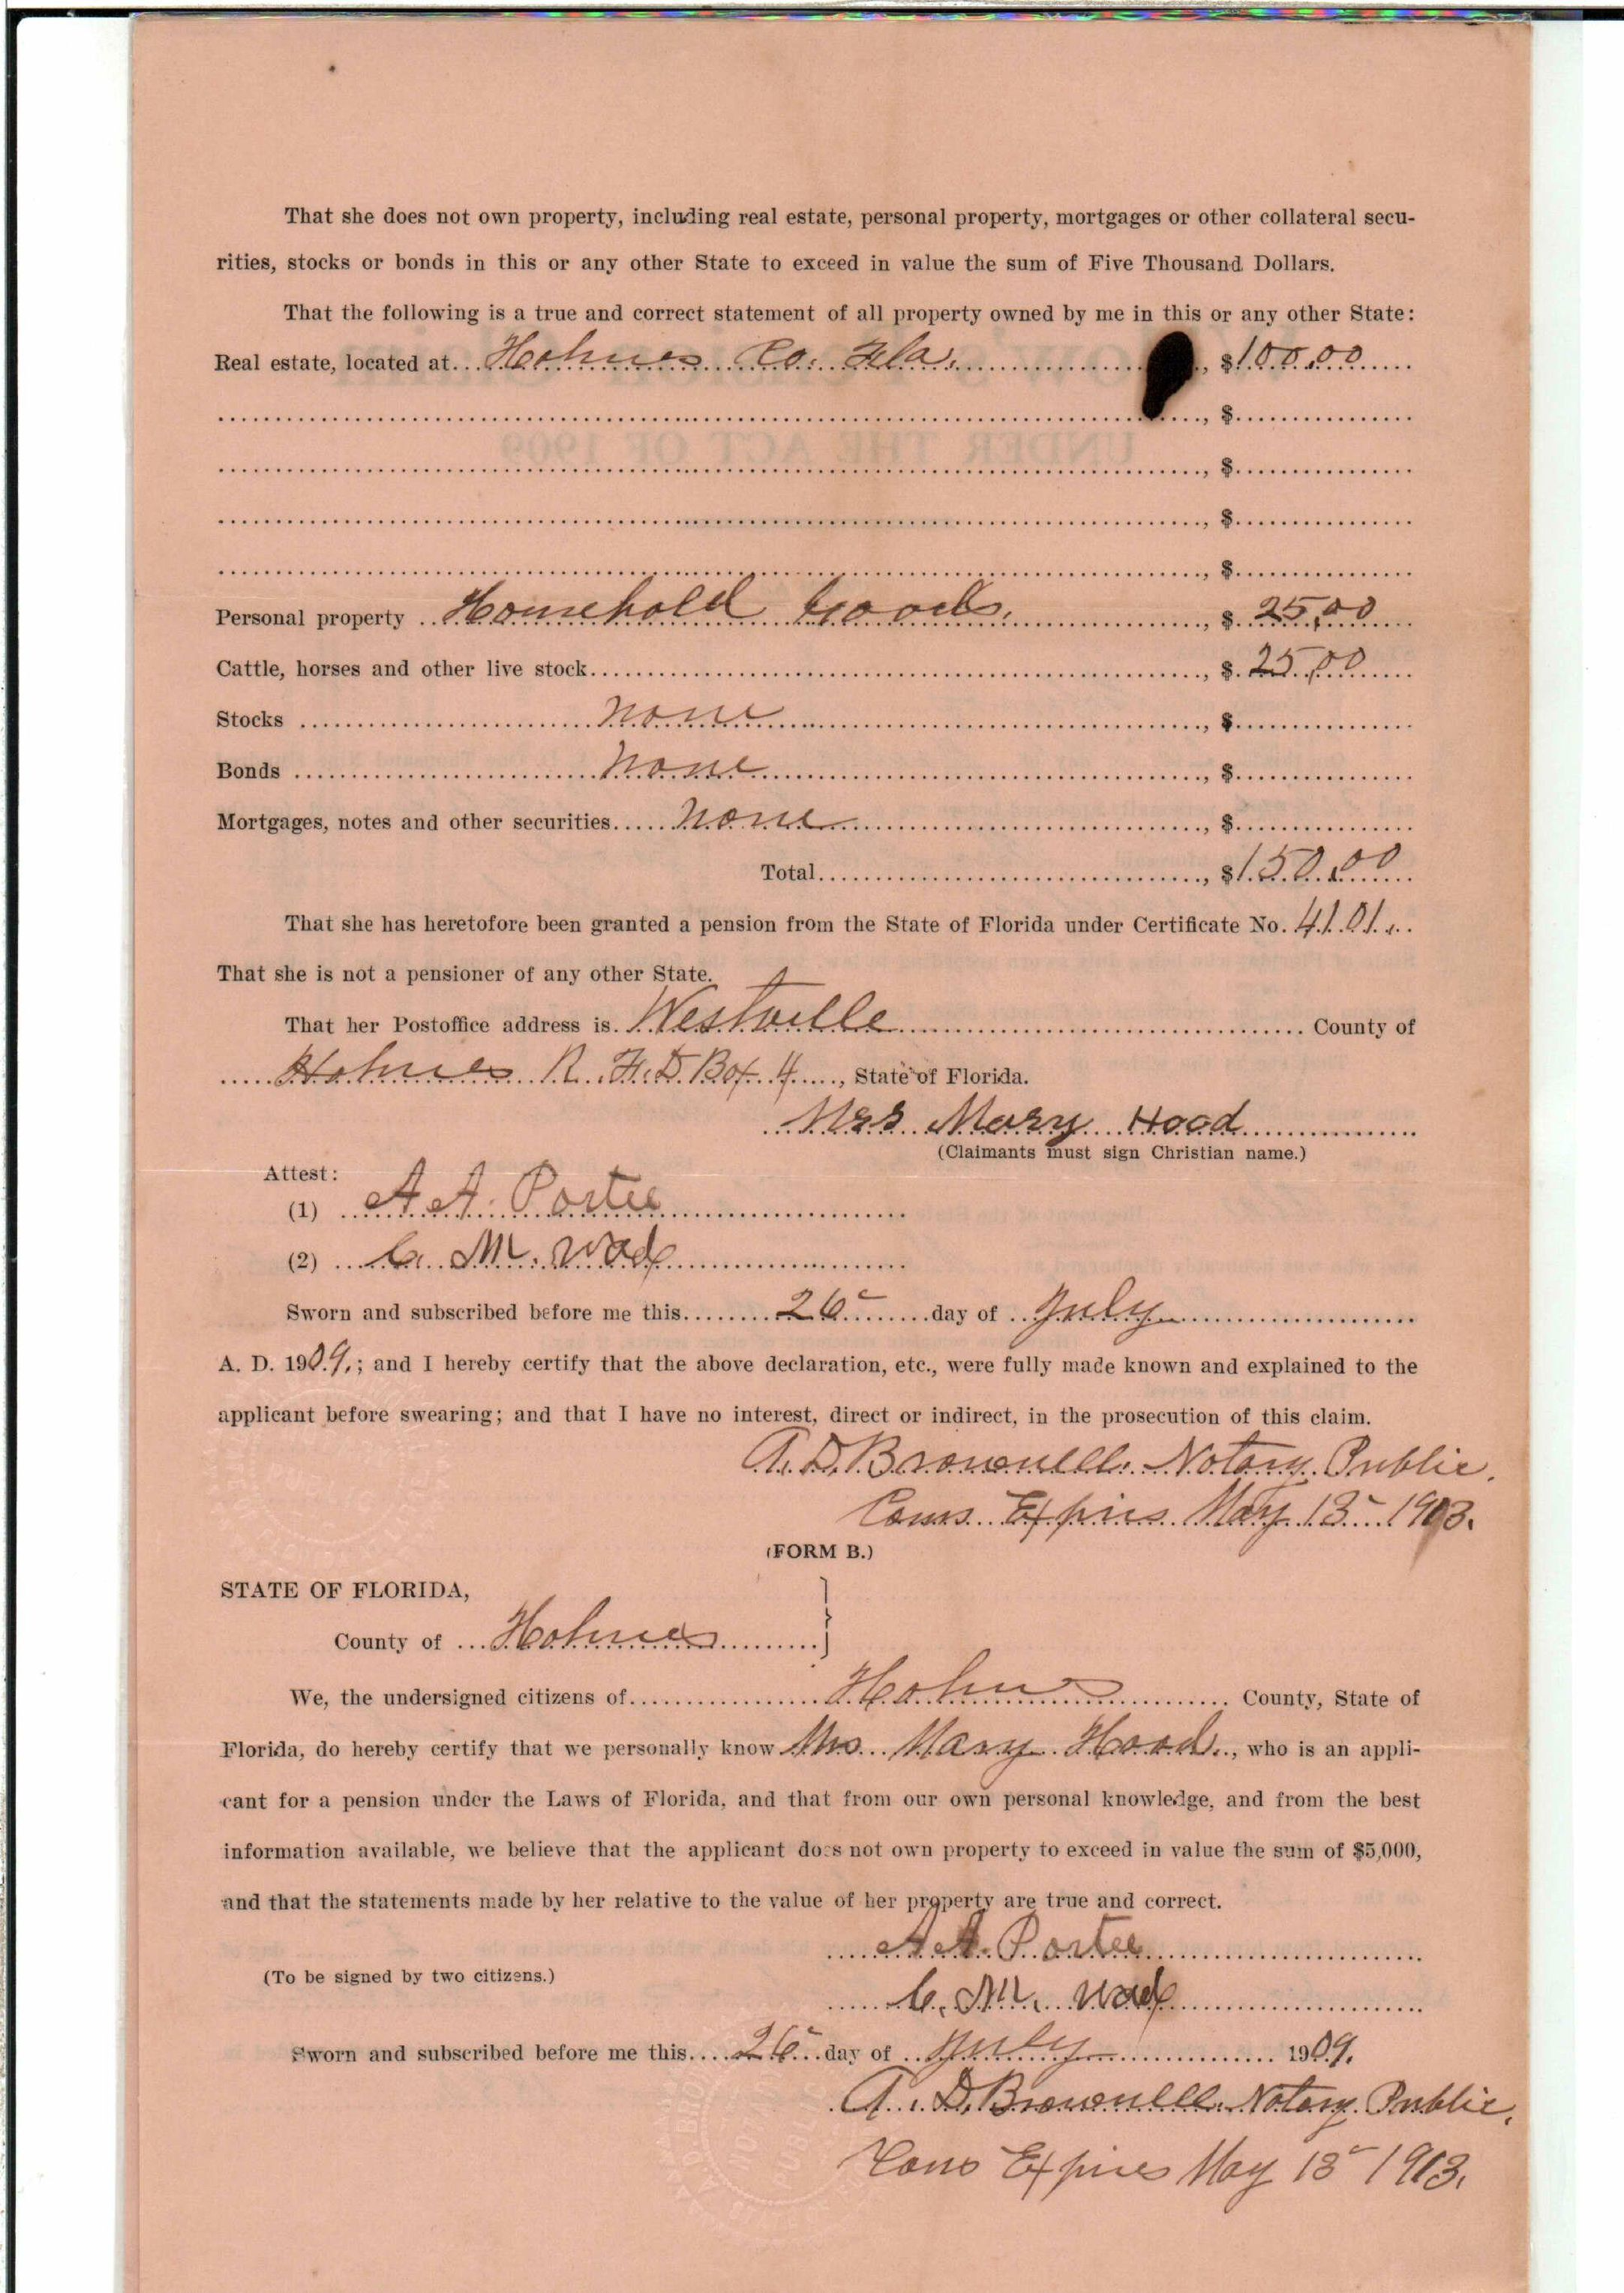 That she does not own property, including real estate, personal property, mortgages or other collateral secu-
rities, stocks or bonds in this or any other State to exceed in value the sum of Five Thousand Dollars.
That the following is a true and correct statement of all property owned by me in this or any other State:
Real estate, located at Holmes Co. Fla. , $100.00
, $
UNDER THE ACT OF 1909
, $
, $
, $
Personal property Household Goods. , $ 25.00
Cattle, horses and other live stock , $ 25.00
Stocks none , $
Bonds none , $
Mortgages, notes and other securities none , $
Total , $150.00
That she has heretofore been granted a pension from the State of Florida under Certificate No. 4101.
That she is not a pensioner of any other State.
That her Postoffice address is Westville County of
Holmes R.F.D. Box 4 , State of Florida.
Mrs Mary Hood
(Claimants must sign Christian name.)
Attest:
(1) A A. Portee
(2) C. M. Wade
Sworn and subscribed before me this 26 day of July
A. D. 1909.; and I hereby certify that the above declaration, etc., were fully made known and explained to the
applicant before swearing; and that I have no interest, direct or indirect, in the prosecution of this claim.
A. D. Brownell. Notary Public.
Coms. Expires May 13 1913.
(FORM B.)
STATE OF FLORIDA,
County of Holmes }
We, the undersigned citizens of Holmes County, State of
Florida, do hereby certify that we personally know Mrs. Mary Hood , who is an appli-
cant for a pension under the Laws of Florida, and that from our own personal knowledge, and from the best
information available, we believe that the applicant does not own property to exceed in value the sum of $5,000,
and that the statements made by her relative to the value of her property are true and correct.
A A. Portee
(To be signed by two citizens.)
C. M. Wade
Sworn and subscribed before me this 26 day of July 1909.
A. D. Brownell. Notary Public.
Coms Expires May 13 1913.